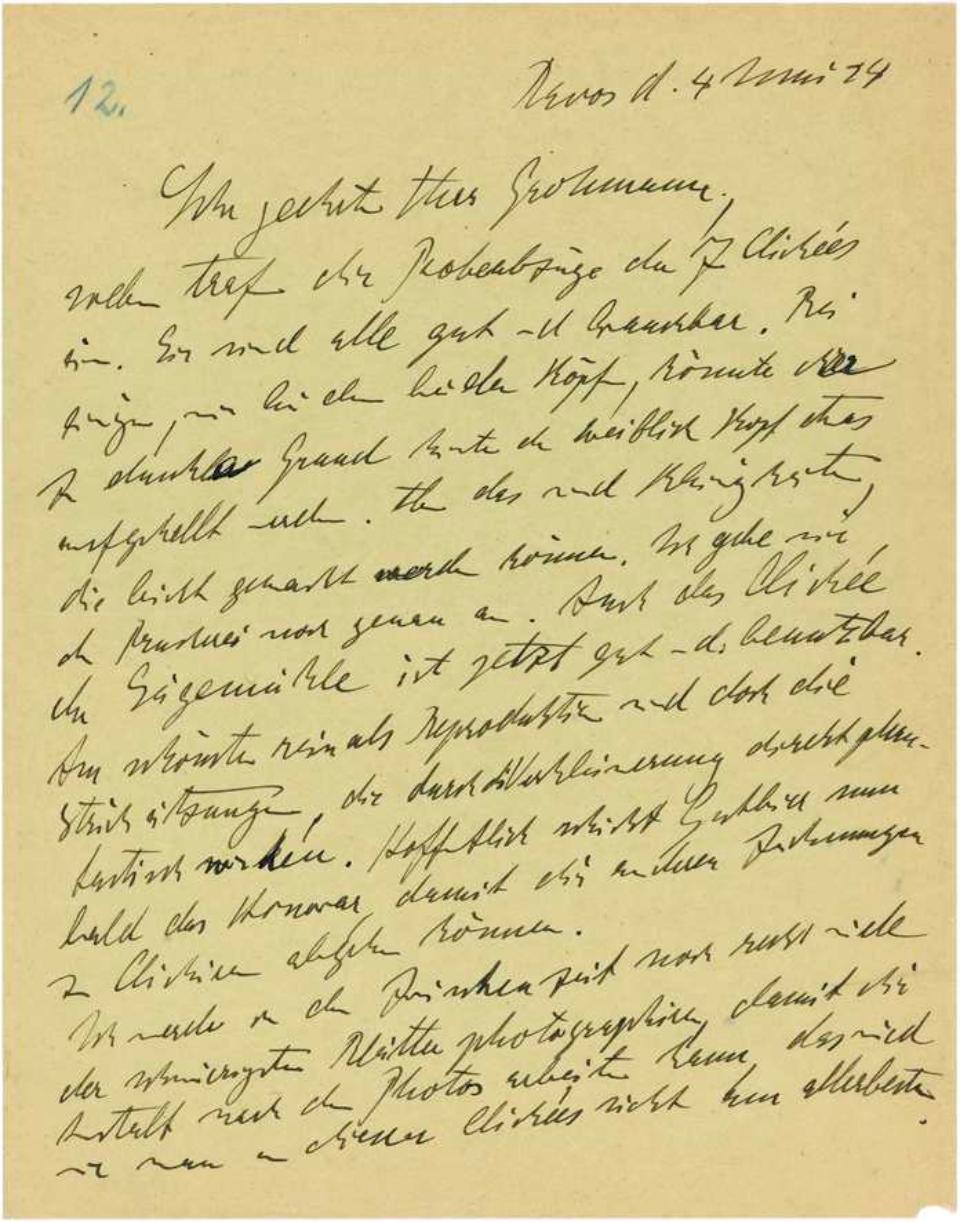 12.
Davos d. 4 Juni 24
Sehr geehrter Herr Grohmann,
soeben traf die Probeabzüge der 7 Clichées
ein. Sie sind alle gut und brauchbar. Bei
einigen, wie bei den beiden Köpfen, könnte der
zu dunkle Grund hinter dem weiblichen Kopf etwas
aufgehellt werden. Aber das sind Kleinigkeiten,
die leicht gemacht werden können. Ich gebe sie
der Druckerei noch genau an. Auch das Clichée
der Sägemühle ist jetzt gut und benutzbar.
Am schönsten rein als Reproduktion sind doch die
Strichätzungen, die durch die Verkleinerung direkt phan-
tastisch wirken. Hoffentlich schickt Gutbier nun
bald das Honorar, damit die anderen Zeichnungen
zu Clichieren abgehen können.
Ich werde in der Zwischenzeit noch recht viele
der schwierigsten Blätter photographieren, damit die
Anstalt nach den Photos arbeiten kann, das wird
wie man an diesen Clichées sieht am allerbesten.